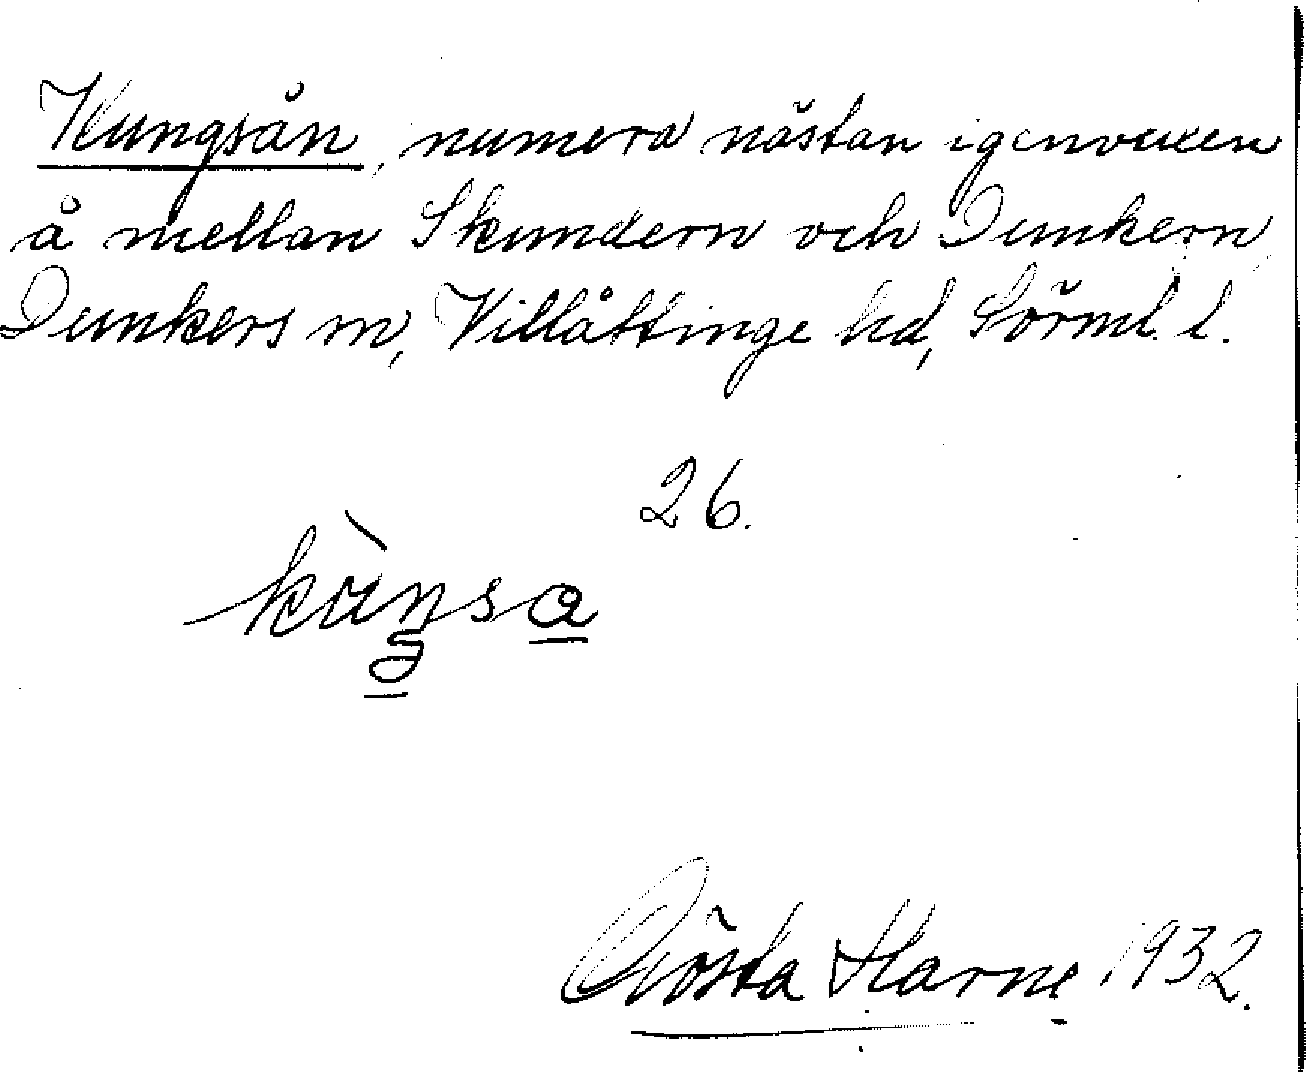 Kungsån, numera nästan igenvuxen
å mellan Skundern och Dunkern,
Dunkers sn, Villåttinge hd, Sörml. l.
26.
Gösta Harne 1932.